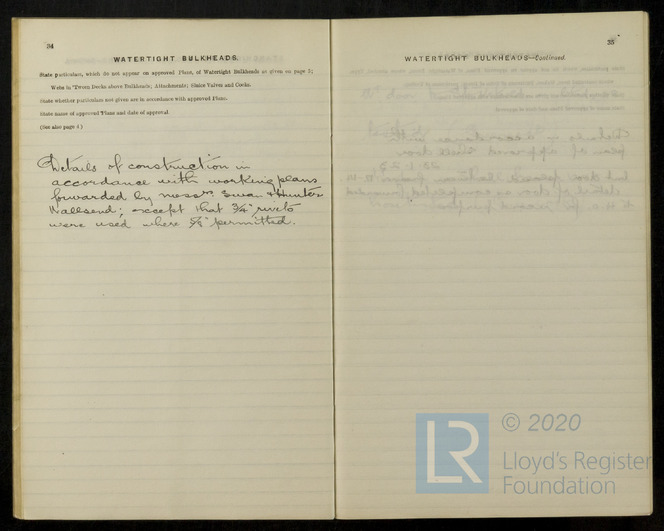 34
WATERTIGHT BULKHEADS.
State particulars, which do not appear on approved Plans, of Watertight Bulkheads as given on page 3;
Webs in 'Tween Decks above Bulkheads; Attachments; Sluice Valves and Cocks.
State whether particulars are given are in accordance with approved Plans.
State name of approved Plans and date of approval
(See also page 4)
Details of construction in
accordance with working plans
forwarded by messrs Swan & Hunter
Wallsend; except that 3/4" rivets
were used where 5/8" permitted.
35
WATERTIGHT BULKHEADS—Continued.
LR
© 2020
Lloyd's Register
Foundation